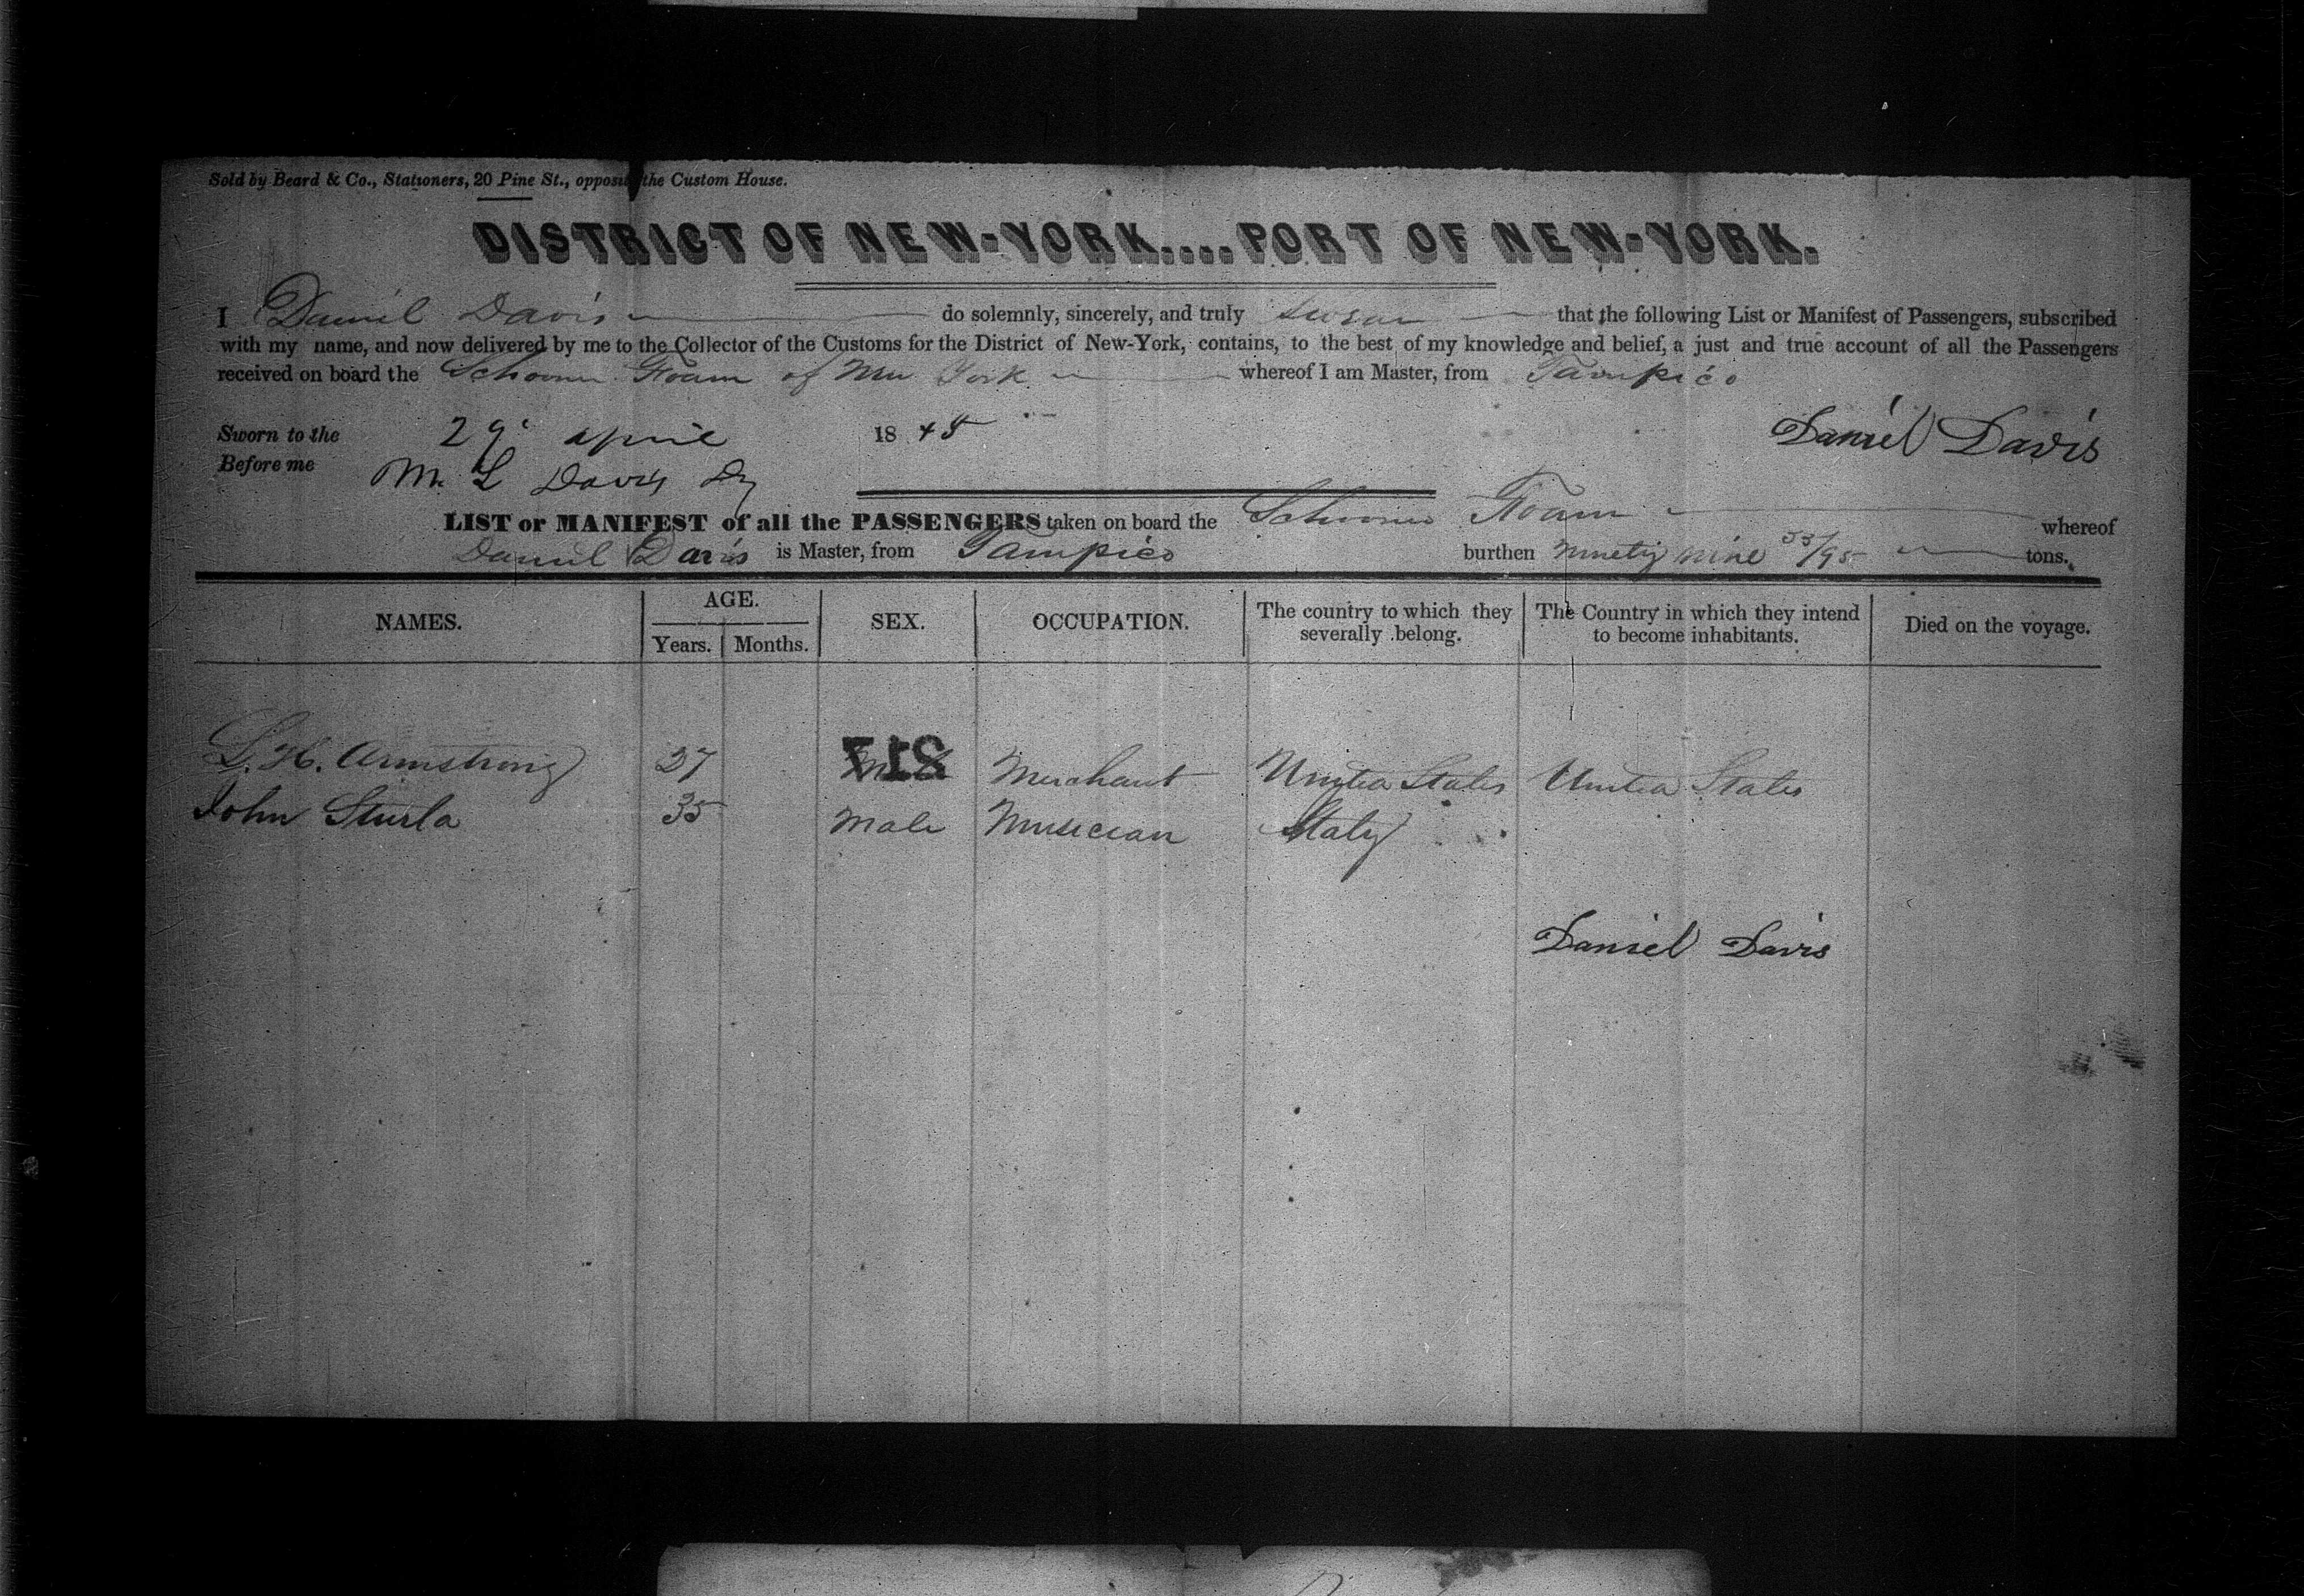 Sold by Beard & Co., Stationers, 20 Pine St., opposite the Custom House.
DISTRICT OF NEW-YORK....PORT OF NEW-YORK.
I Daniel Davis do solemnly, sincerely, and truly swear that the following List or Manifest of Passengers, subscribed
with my name, and now delivered by me to the Collector of the Customs for the District of New-York, contains, to the best of my knowledge and belief, a just and true account of all the Passengers
received on board the Schooner Foam of New York whereof I am Master, from Tampico
Sworn to the 29 April 1845 Daniel Davis
Before me M. L Davis Dy
LIST or MANIFEST of all the PASSENGERS taken on board the Schooner Foam whereof
Daniel Davis is Master, from Tampico burthen Ninety nine /95 tons.
NAMES. AGE. Years. Months. SEX. OCCUPATION. The country to which they severally belong. The Country in which they intend to become inhabitants. Died on the voyage.
817
L. H. Armstrong 27 Male Merchant United States United States
John Sturla 35 Male Musician Italy
Daniel Davis